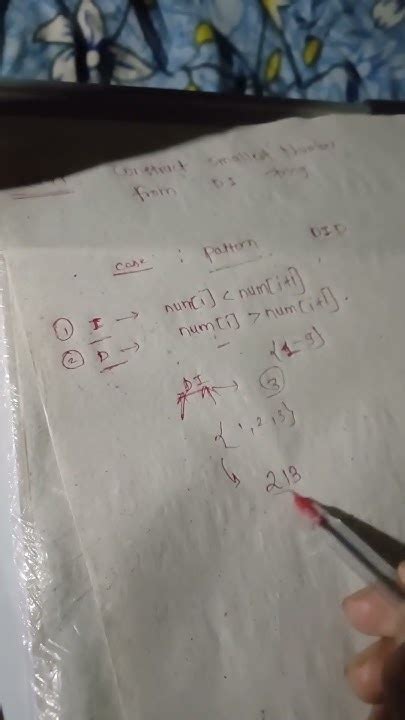 Construct Smallest Number
from DI string
case : Pattern DID
① I → num[i] < num[i+1]
② D → num[i] > num[i+1].
{1-9}
DI → ③
{1,2,3}
213